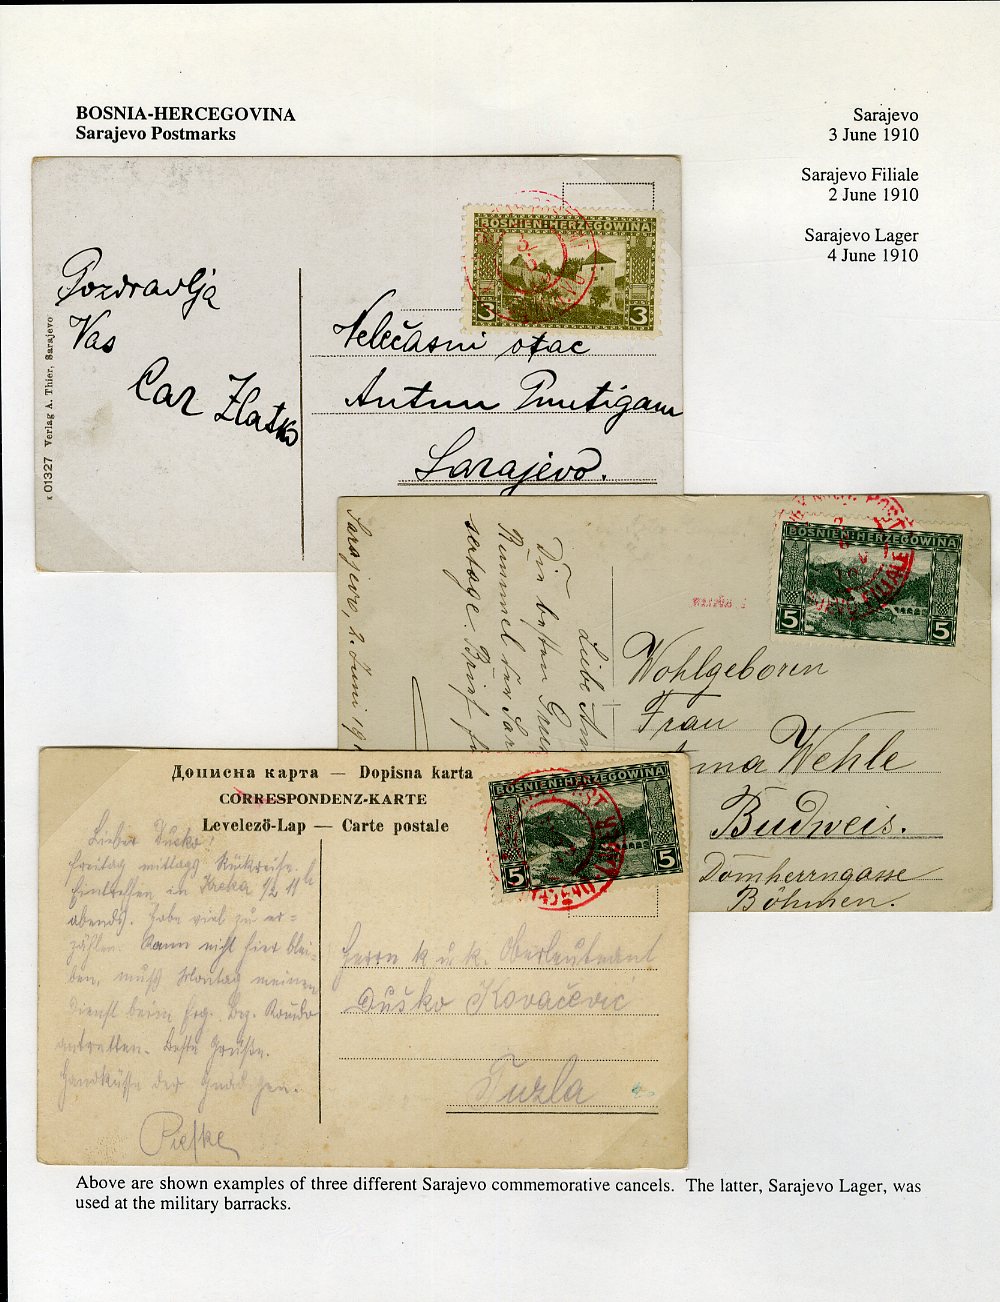 BOSNIA-HERCEGOVINA
Sarajevo Postmarks
Sarajevo
3 June 1910
Sarajevo Filiale
2 June 1910
Sarajevo Lager
4 June 1910
BOSNIEN:HERZEGOWINA
3 3
Pozdravlja
Vas
Car Zlatko
K 01327 Verlag A. Thier, Sarajevo
Velečasni otac
Antun
Sarajevo.
BOSNIEN:HERZEGOWINA
5 5
Sarajevo, 2. Juni 19
Liebe
Die besten
Wohlgeboren
Frau
ma Wehle
Budweis.
Domherrngasse
Böhmen.
Дописна карта — Dopisna karta
CORRESPONDENZ-KARTE
Levelező-Lap — Carte postale
BOSNIEN:HERZEGOWINA
5 5
Lieber Dusko
Freitag mittags Rückreise.
Eintreffen in Kreka 1/2 11h
abends. Habe viel zu er=
zählen. Kann nicht hier blei=
ben, muß Montag meinen
Dienst beim
antretten. Beste Grüße.
Handküsse der
Herrn k. u. k. Oberleutnant
Duško Kovačević
Tuzla
Above are shown examples of three different Sarajevo commemorative cancels. The latter, Sarajevo Lager, was
used at the military barracks.